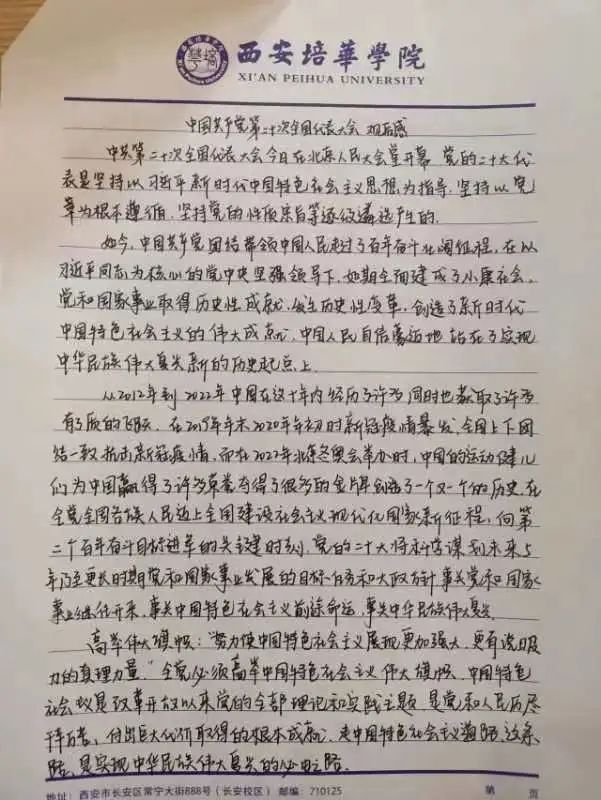 西安培華學院
XI'AN PEIHUA UNIVERSITY
中国共产党第二十次全国代表大会 观后感
中共第二十次全国代表大会今日在北京人民大会堂开幕 党的二十大代
表是坚持以习近平新时代中国特色社会主义思想为指导.坚持以党
章为根本遵循.坚持党的性质宗旨等逐级遴选产生的.
如今.中国共产党团结带领中国人民走过了百年奋斗壮阔征程.在以
习近平同志为核心的党中央坚强领导下.如期全面建成了小康社会.
党和国家事业取得历史性成就.发生历史性变革.创造了新时代
中国特色社会主义的伟大成就.中国人民自信豪迈地 站在了实现
中华民族伟大复兴新的历史起点上.
从2012年到2022年中国在这十年内经历了许多 同时也获取了许多
有了质的飞跃.在2019年年末2020年年初时新冠疫情暴发.全国上下团
结一致 抗击新冠疫情.而在2022年北京冬奥会举办时,中国的运动健儿
们为中国赢得了许多荣誉夺得了很多的金牌创造了一个又一个的历史.在
全党全国各族人民迈上全国建设社会主义现代化国家新征程,向第
二个百年奋斗目标进军的关键时刻.党的二十大将科学谋划未来5
年乃至更长时期党和国家事业发展的目标任务和大政方针 事关党和国家
事业继往开来,事关中国特色社会主义前途命运,事关中华民族伟大复兴.
高举伟大旗帜:"努力使中国特色社会主义展现更加强大、更有说服
力的真理力量."全党必须高举中国特色社会主义伟大旗帜.中国特色
社会主义是改革开放以来党的全部理论和实践主题.是党和人民历尽
千辛万苦、付出巨大代价取得的根本成就.走中国特色社会主义道路.这条
路.是实现中华民族伟大复兴的必由之路.
地址:西安市长安区常宁大街888号(长安校区) 邮编:710125 第 页